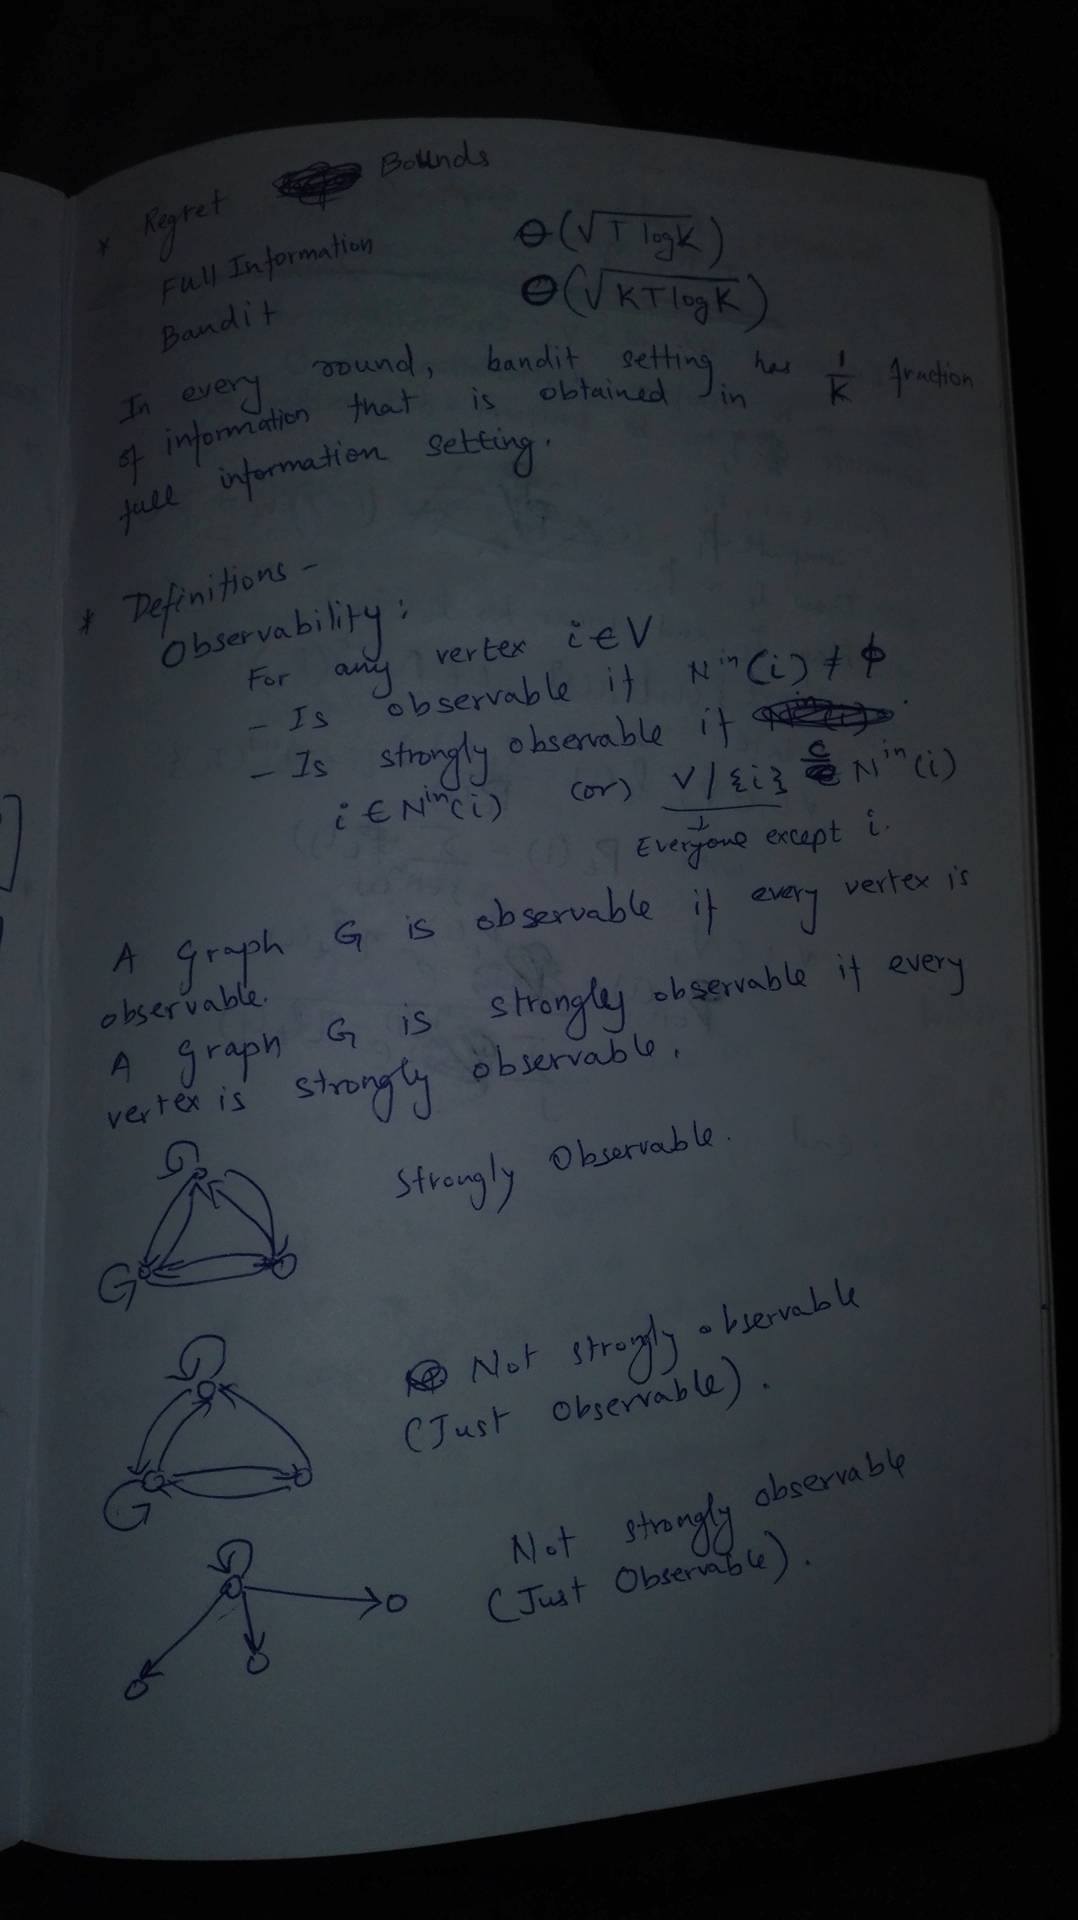 * Regret Bounds
Full Information Θ(√T logK)
Bandit Θ(√KTlogK)
In every round, bandit setting has 1/K fraction
of information that is obtained in
full information setting.
* Definitions -
Observability:
For any vertex i ∈ V
- Is observable if N^in(i) ≠ ϕ
- Is strongly observable if
i ∈ N^in(i) (or) V/{i} ⊆ N^in(i)
Everyone except i.
A graph G is observable if every vertex is
observable.
A graph G is strongly observable if every
vertex is strongly observable.
Strongly Observable.
Not strongly observable
(Just Observable).
Not strongly observable
(Just Observable).